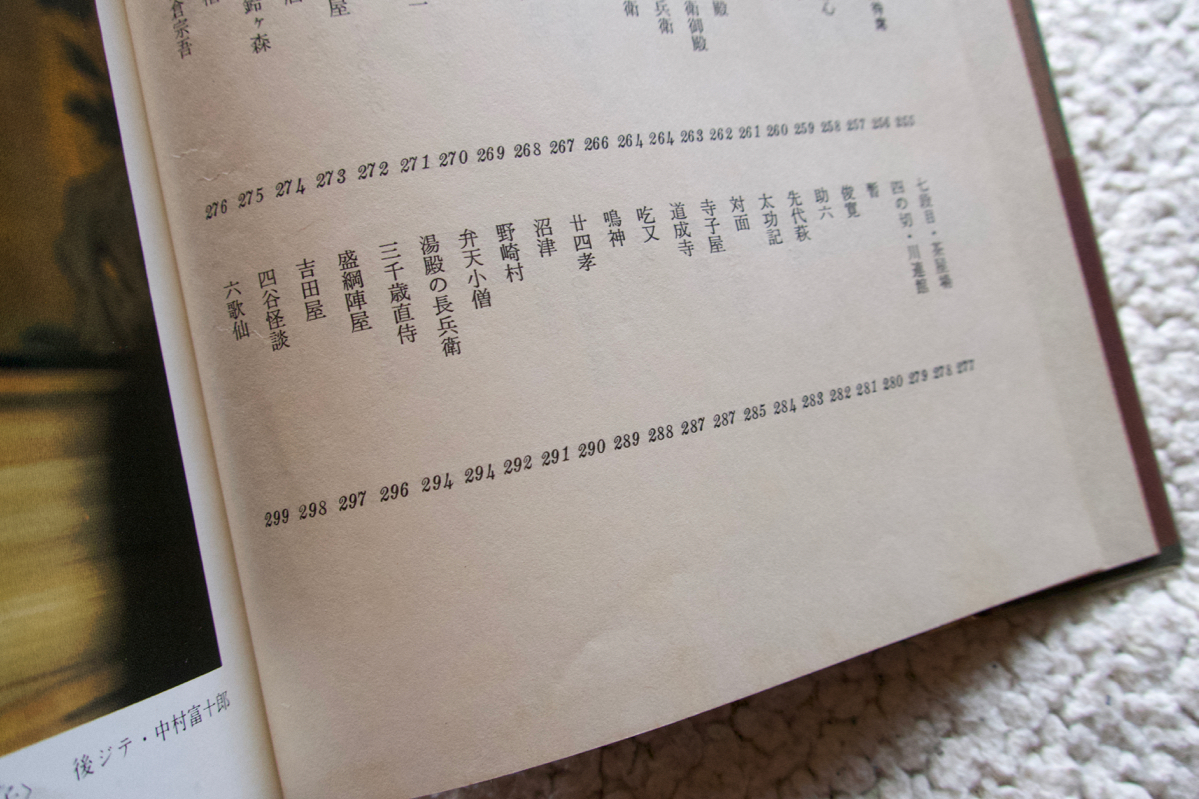 心
殿
衛御殿
兵衛
衛
屋
鈴ヶ森
倉宗吾
255
256
257
258
259
260
261
262
263
264
264
266
267
268
269
270
271
272
273
274
275
276
七段目・茶屋場 277
四の切・川連館 278
暫 279
俊寛 280
助六 281
先代萩 282
太功記 283
対面 284
寺子屋 285
道成寺 287
吃又 287
鳴神 288
廿四孝 289
沼津 290
野崎村 291
弁天小僧 292
湯殿の長兵衛 294
三千歳直侍 294
盛綱陣屋 296
吉田屋 297
四谷怪談 298
六歌仙 299
後ジテ・中村富十郎